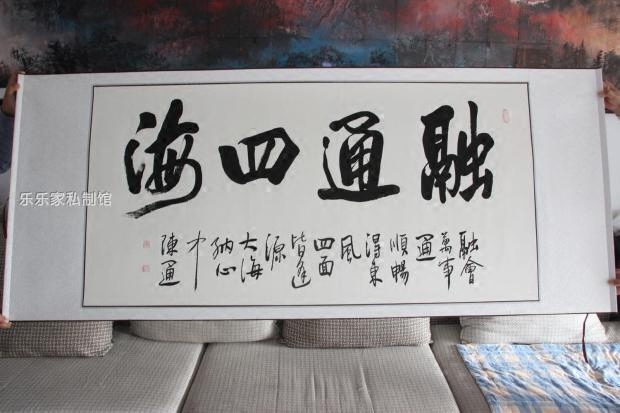 融通四海
融會
萬事
通
順暢
得東
風
四面
皆逢
源
大海
納心
中
陳通
乐乐家私制馆